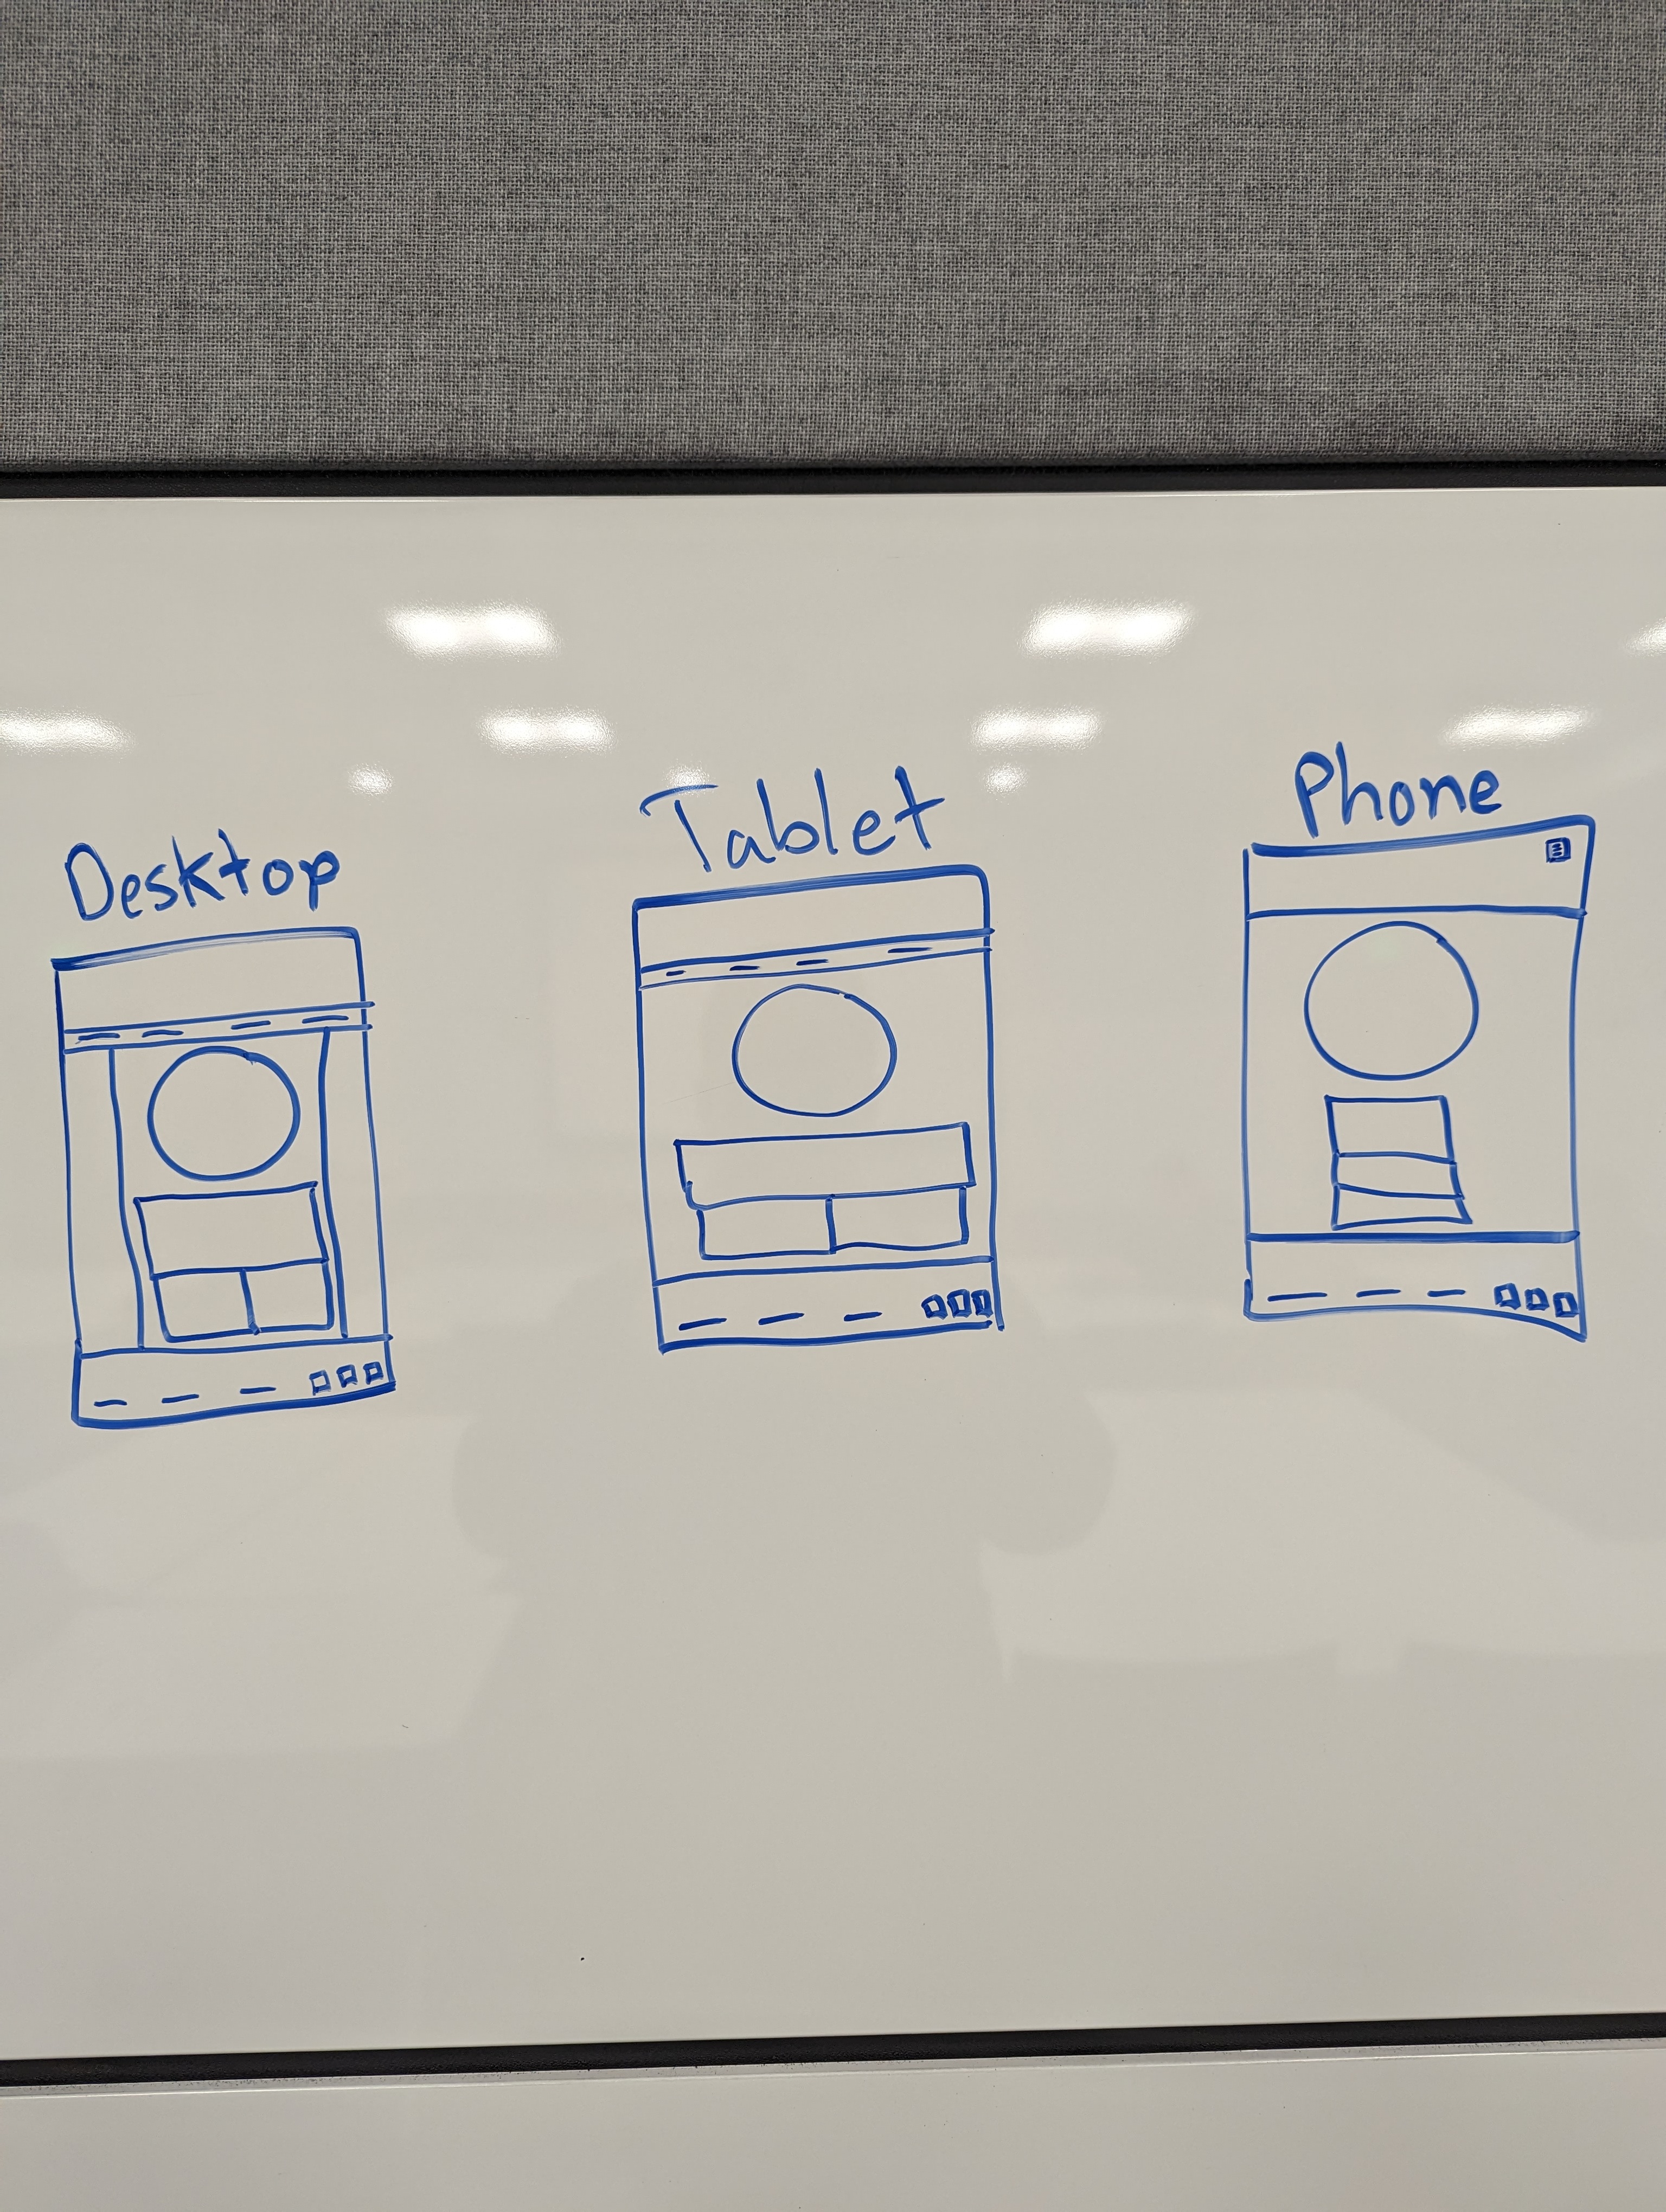 Desktop
Tablet
Phone